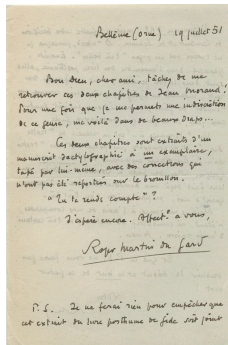 Bellême (Orne) 19 juillet 51
Bon Dieu, cher ami, tâchez de me
retrouver ces deux chapitres de Jean Morand !
Pour une fois que je me permets une indiscrétion
de ce genre, me voilà dans de beaux draps...
Ces deux chapitres sont extraits d'un
manuscrit dactylographié à un exemplaire,
tapé par lui-même, avec des corrections qui
n'ont pas été reportées sur le brouillon.
"Tu te rends compte" ?
J'espère encore. Affectt à vous,
Roger Martin du Gard
P.S. Je ne ferai rien pour empêcher que
cet extrait du livre posthume de Gide soit joint